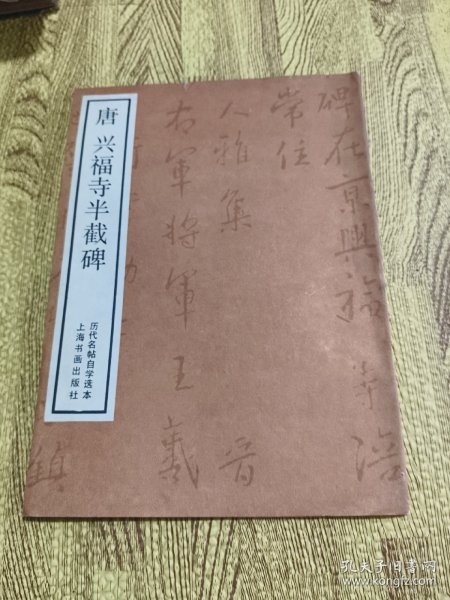 唐 兴福寺半截碑
历代名帖自学选本
上海书画出版社
碑在京興福寺浩
常住
人雅集 晋
右軍将軍王羲
鎮
孔夫子旧书网
www.kongfz.com